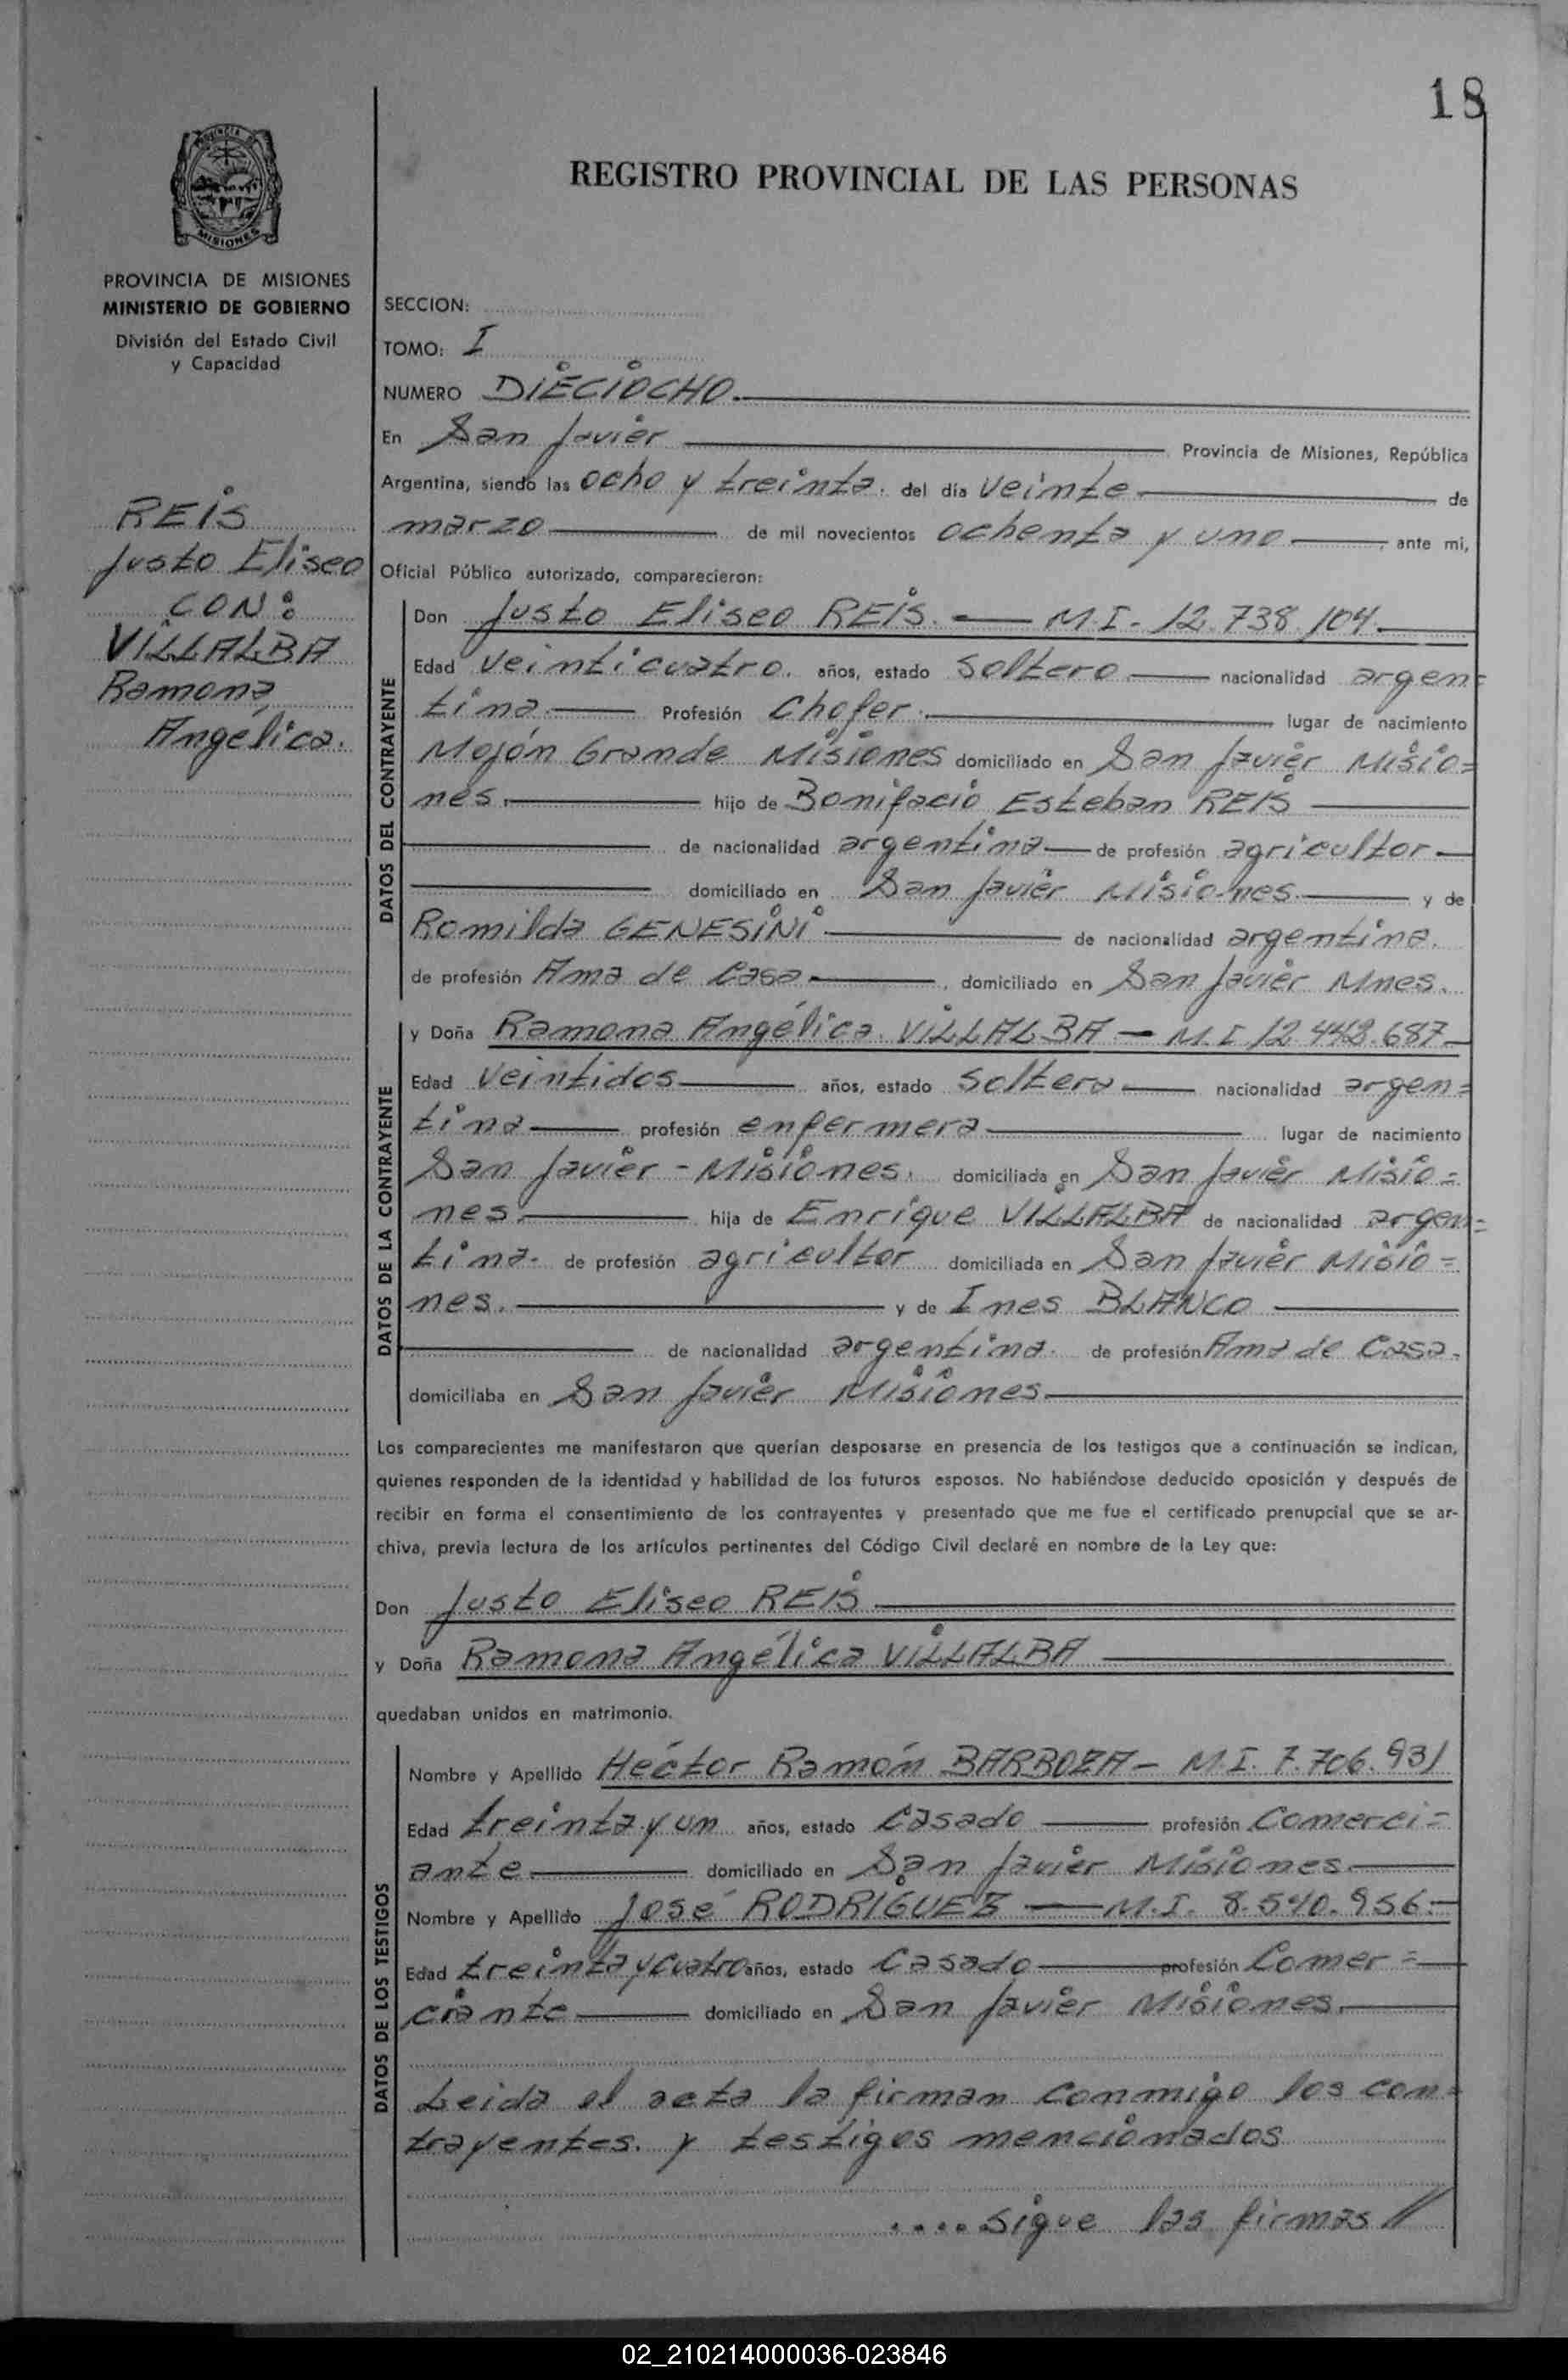 18
REGISTRO PROVINCIAL DE LAS PERSONAS
PROVINCIA DE MISIONES
PROVINCIA DE MISIONES
MINISTERIO DE GOBIERNO
División del Estado Civil
y Capacidad
REIS
Justo Eliseo
CON:
VILLALBA
Ramona
Angélica.
SECCION:
TOMO: I
NUMERO DIECIOCHO.
En San Javier Provincia de Misiones, República
Argentina, siendo las ocho y treinta. del día veinte de
marzo de mil novecientos ochenta y uno, ante mi,
Oficial Público autorizado, comparecieron:
DATOS DEL CONTRAYENTE
Don Justo Eliseo REIS. — M.I. 12.738.104.
Edad veinticuatro. años, estado soltero nacionalidad argen=
tina. Profesión Chofer. lugar de nacimiento
Mojón Grande Misiones domiciliado en San Javier Misio=
nes. hijo de Bonifacio Esteban REIS
de nacionalidad argentina de profesión agricultor
domiciliado en San Javier Misiones. y de
Romilda GENESINI de nacionalidad argentina.
de profesión Ama de Casa. domiciliado en San Javier Mnes.
DATOS DE LA CONTRAYENTE
y Doña Ramona Angélica VILLALBA — M.I 12.448.687
Edad veintidos años, estado soltera nacionalidad argen=
tina profesión enfermera lugar de nacimiento
San Javier - Misiones. domiciliada en San Javier Misio=
nes. hija de Enrique VILLALBA de nacionalidad argen=
tina. de profesión agricultor domiciliada en San Javier Misio=
nes. y de Ines BLANCO
de nacionalidad argentina. de profesión Ama de Casa.
domiciliaba en San Javier Misiones.
Los comparecientes me manifestaron que querían desposarse en presencia de los testigos que a continuación se indican,
quienes responden de la identidad y habilidad de los futuros esposos. No habiéndose deducido oposición y después de
recibir en forma el consentimiento de los contrayentes y presentado que me fue el certificado prenupcial que se ar-
chiva, previa lectura de los artículos pertinentes del Código Civil declaré en nombre de la Ley que:
Don Justo Eliseo REIS
y Doña Ramona Angélica VILLALBA
quedaban unidos en matrimonio.
DATOS DE LOS TESTIGOS
Nombre y Apellido Héctor Ramón BARBOZA - M.I. 7.706.931
Edad treinta y un años, estado Casado profesión Comerci=
ante domiciliado en San Javier Misiones.
Nombre y Apellido José RODRIGUEZ — M.I. 8.540.956.
Edad treinta y cuatro años, estado Casado profesión Comer=
ciante domiciliado en San Javier Misiones.
Leida el acta la firman conmigo los con=
trayentes. y testigos mencionados
....sigue las firmas //
02_210214000036-023846